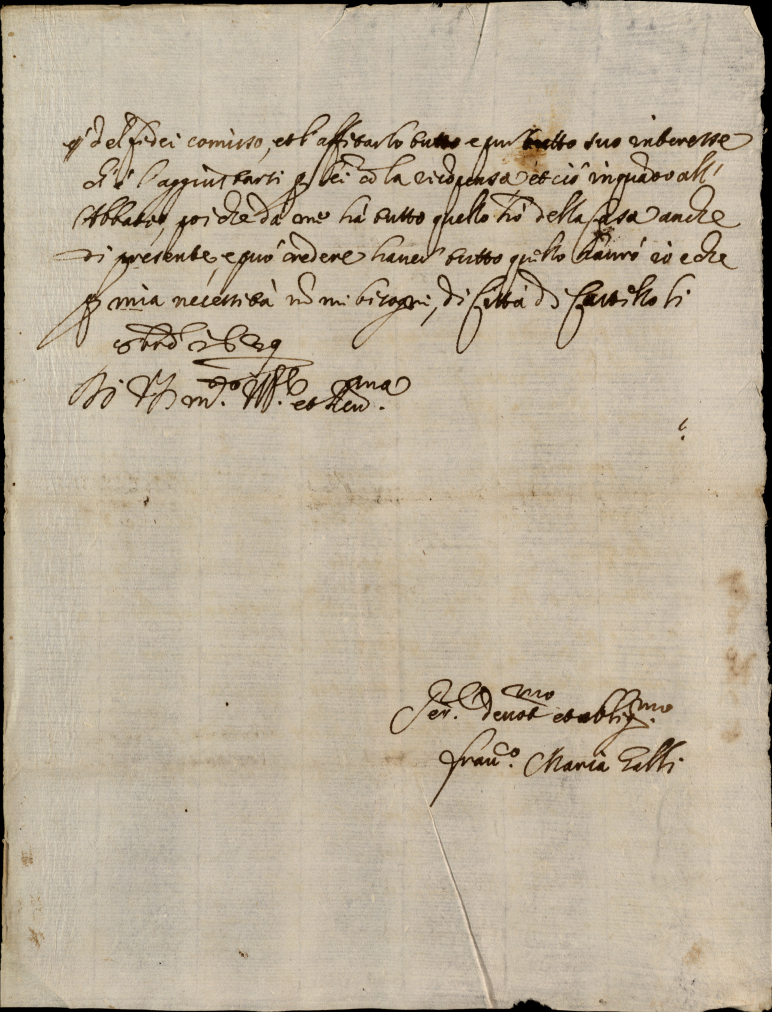 del fidei comisso, et l'affitarlo tutto e pur tutto suo interesse
l'aggiustarsi p lei cõ la ricõpensa et ciò in quãto all'
Abbate, poiche da me hà tutto quello hò della Casa anche
di presente, e può credere haver tutto quello hauró io e che
p mia necessità nõ mi bisogni, di Città di Castello li
Di VS m.to Ill.e et Reu.ma
Ser.e deuot.mo et oblig.mo
Fran.o Maria